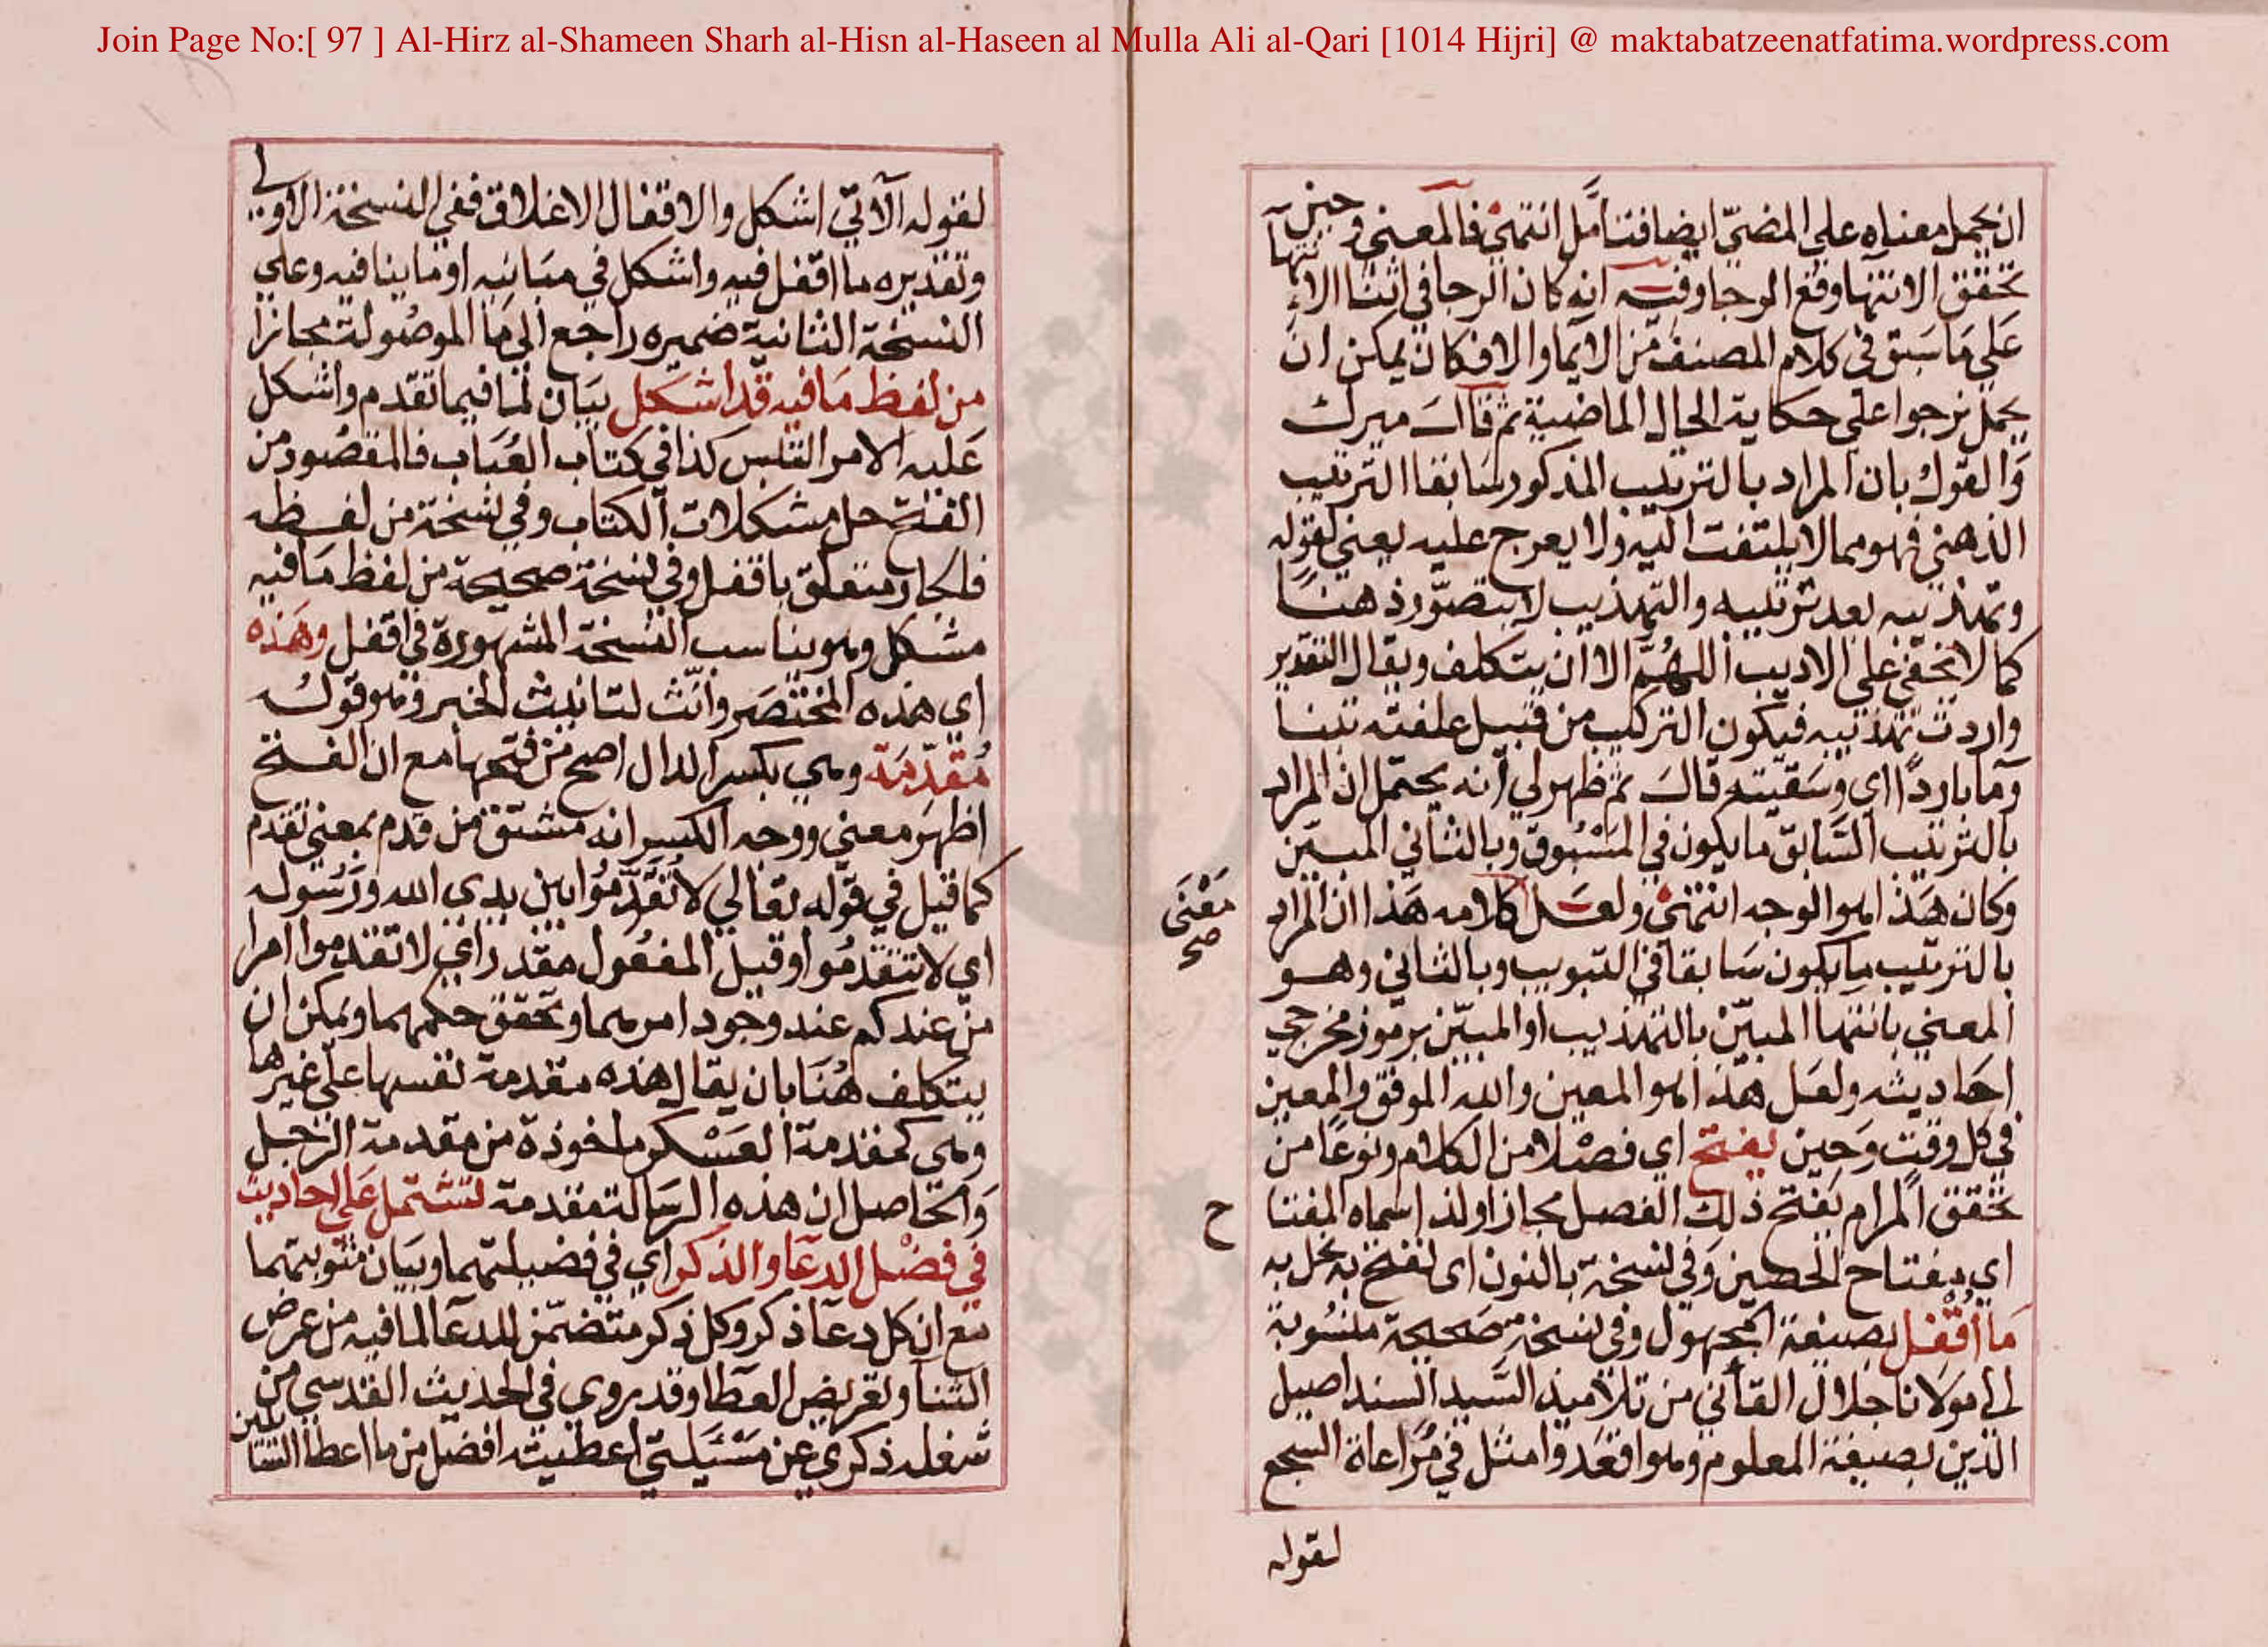 Join Page No:[ 97 ] Al-Hirz al-Shameen Sharh al-Hisn al-Haseen al Mulla Ali al-Qari [1014 Hijri] @ maktabatzeenatfatima.wordpress.com
ان يحمل معناه علي المضيّ ايضا فتأمّل انتهي فالمعني وحين
تحقق الانتهاوقع الرجا وفيه انه كان الرجا في اثنا الانتهاء
عَلي مَا سَبق في كلام المصنف من الايما والا فكان يمكن ان
يحمل نرجوا علي حكاية الحال الماضية ثم قال ميرك
وَالقول بان المراد بالترتيب المذكور سَابقا الترتيب
الذهني فهو مما لا يلتفت اليه ولا يعرج عليه يعني لقوله
وتهذيبه بعد ترتيبه والتهذيب لا يتصوّر ذهنًا
كما لا يخفي علي الاديب اللهُمّ الا ان يتكلف ويقال التقدير
واردت تهذيبه فيكون التركيب من قبيل علفته تبنا
وما باردًا اي وسَقيته قال ثم ظهر لي انه يحتمل ان المراد
بالترتيب السَّابق ما يكون في المَسْبُوق وبالثاني المبين
وكان هَذا هو الوجه انتهي ولعَل مَعْنَي صح كلامه هَذا ان المراد
بالترتيب ما يكون سَابقا في التبويب وبالثاني وهو
المعني بانتها المبيّن بالتهذيب او المبيّن برموز مخرجي
احَاديثه ولعَل هذا هو المعين والله الموفق والمعين
في كل وقت وَحين يفتح اي فصْلا من الكلام ونوعًا من
تحقق المرام يَفتح ذلك الفصل مجازا ولذا سماه المفتاح
اي مفتاح الحصين وَفي نسخة بالنون اي نفتح به نحل به
مَا أُقْفِل بصيغة المجهول وفي نسخة صَحيحة منسُوبة
الي مولانا جلال القائني من تلاميذ السَّيد السند اصيل
الدّين بصيغة المعلوم وهو اقعَد وامثل في مُراعاة السجع
لقوله
لقوله الآتي اشكل والاقفال الاغلاق ففي النسخة الاولي
وتقديره ما اقفل فيه واشكل في مبَانيه او ما ينافيه وعلي
النسخة الثانية ضميره راجع الي مَا الموصُولة مجازا
من لفظ مَا فيه قد اشكل بيَان لما فيما تقدم واشكل
عَليه الامر التلبس كذا في كتاب العُبَاب فالمقصُود من
الفتح حل مشكلات الكتاب وفي نسُخة من لفظه
فالجار متعلق باقفل وفي نسخة صحيحة من لفظ مَا فيه
مشكل وهو يناسب النسخة المشهورة في اقفل وهَذه
اي هذه المختصَر وانّث لتانيث الخبر وهو قوله
مُقدّمَة وهي بكسر الدال اصح من فتحها مع ان الفتح
اظهر معني ووجه الكسر انه مشتق من قدم بمعني تقدم
كما قيل في قوله تعالي لا تُقَدِّمُوا بين يدي الله ورَسُوله
اي لا تتقدمُوا وقيل المفعُول مقدر اي لا تقدموا امرا
من عندكم عند وجود امرهما وتحقق حكمهما ويمكن ان
يتكلف هُنَا بان يقال هذه مقدمة نفسها علي غيرها
وهي كمقدمة العَسْكر ماخوذة من مقدمة الرّجل
وَالحَاصل ان هذه الرسَالة مقدمة لتشتمل عَلي احاديث
في فضْل الدعَا والذكر اي في فضيلتهما وبيَان مثوبتهما
مَع ان كل دعا ذكر وكل ذكر متضمّن للدعا لما فيه من عرض
الثنا وتعريض العطا وقد يروي في الحديث القدسي من
شغله ذكري عن مَسْئَلتي اعطيته افضل من ما اعطا السّائلين